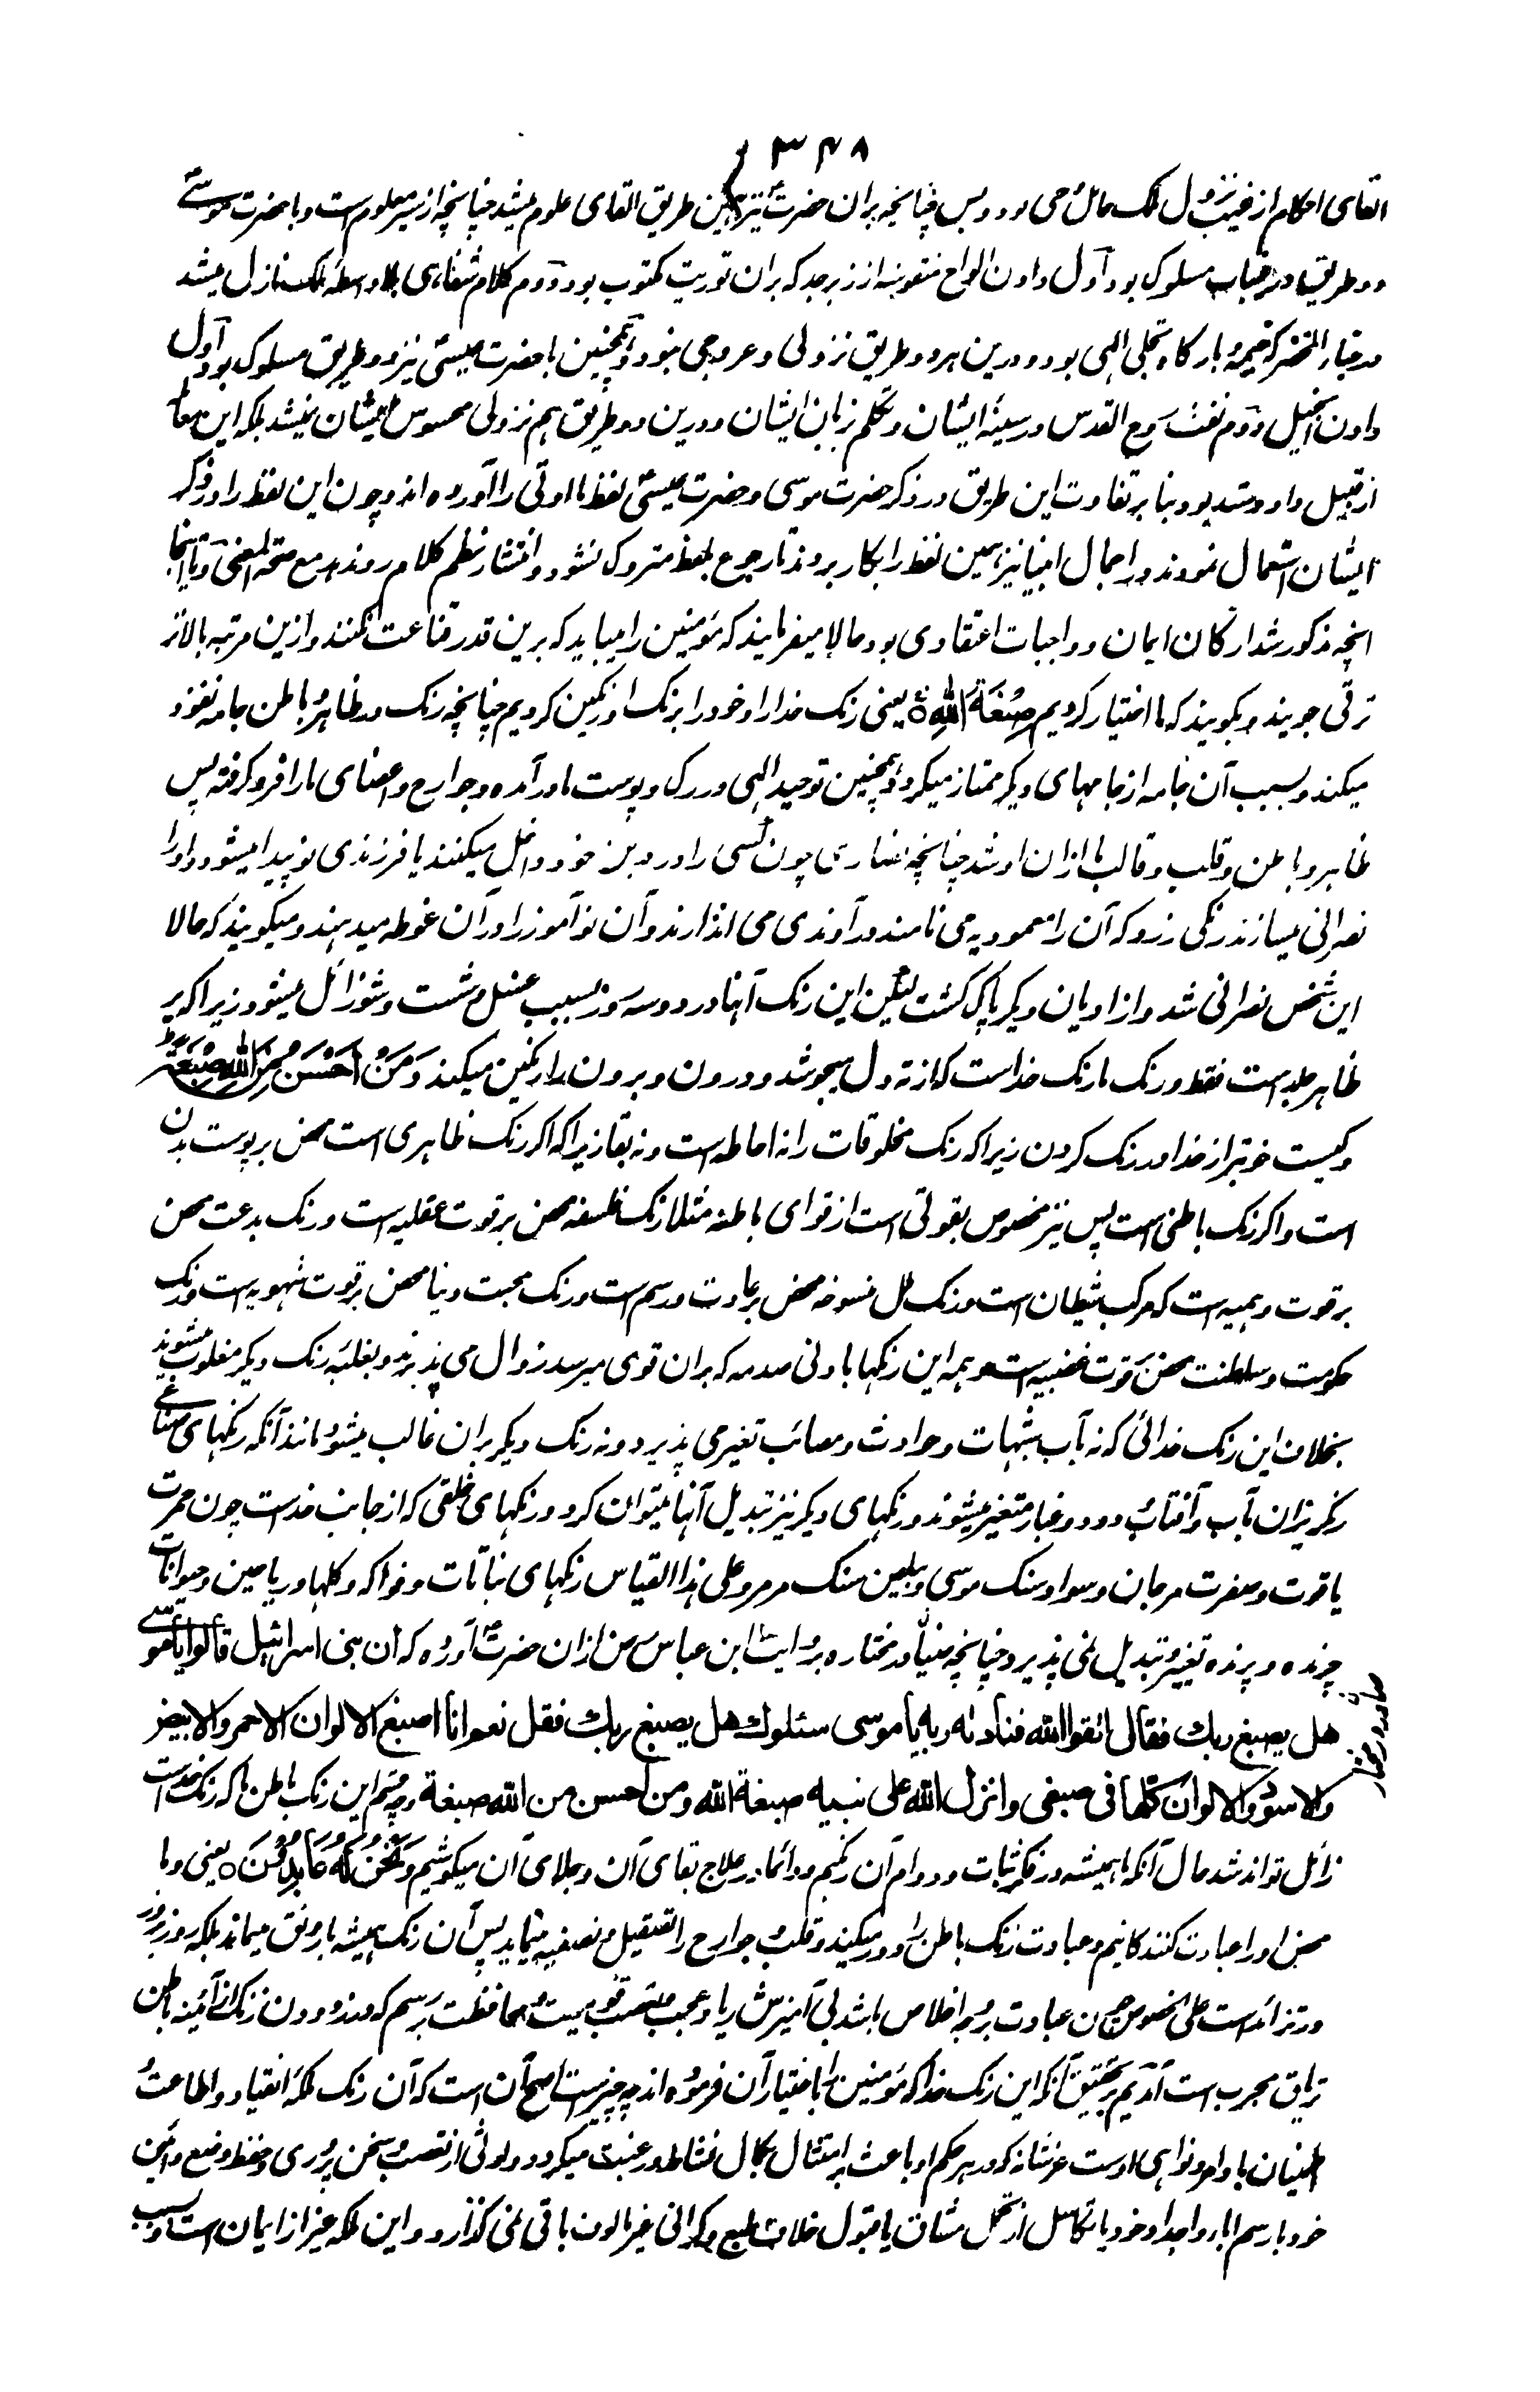 ۳۴۸
القای احکام از غیب نزول ملک حامل وحی بود و بس چنانچه بران حضرت نیز همین طریق القای علوم میشد چنانچه از سیر معلوم است و با حضرت موسی
دو طریق در جناب مسلوک بود اول دادن الواح منقوشه از زبرجد که بران توریت مکتوب بود دوم کلام شفاهی بلا واسطه ملک نازل میشد
در قبة که خیمه و بارگاه تجلی الهی بود و درین هر دو طریق نزولی و عروجی نبود و همچنین با حضرت عیسی نیز دو طریق مسلوک بود اول
دادن انجیل دوم نفث روح القدس در سینهٔ ایشان و تکلم بزبان ایشان و درین دو طریق هم نزولی محسوس ایشان نمیشد بلکه این معاملت
از قبیل داد و ستد بود بنا بر تفاوت این طریق در ذکر حضرت موسی و حضرت عیسی لفظ ما اوتی را آورده اند و چون این لفظ را در ذکر
ایشان استعمال نمودند در اجمال انبیا نیز همین لفظ را بکار بردند تا رجوع بلفظ متروک نشود و انتشار نظم کلام رو ندهد مع صحة المعنی و تا اینجا
انچه مذکور شد ارکان ایمان و واجبات اعتقادی بود حالا میفرمایند که مؤمنین را میباید که برین قدر قناعت نکنند و ازین مرتبه بالاتر
ترقی جویند و بگویند که ما اختیار کردیم صِبْغَةَ اللّٰهِ یعنی رنگ خدا را و خود را برنگ او رنگین کردیم چنانچه رنگ در ظاهر و باطن جامه نفوذ
میکند و بسبب آن جامه از جامهای دیگر ممتاز میگردد همچنین توحید الهی در رگ و پوست ما در آمده و جوارح و اعضای ما را فرو گرفته پس
ظاهر و باطن و قلب و قالب ما ازان او شد چنانچه نصاری چون کسی را در دین خود داخل میکنند یا فرزندی نو پیدا میشود و او را
نصرانی میسازند رنگی زرد که آن را معمودیه می نامند در آوندی می اندازند و آن نو آموز را در آن غوطه میدهند و میگویند که حالا
این شخص نصرانی شد و از ادیان دیگر پاک گشت لیکن این رنگ آنها در دو سه روز بسبب غسل و شست و شو زائل میشود زیرا که بر
ظاهر جلد است فقط و رنگ ما رنگ خداست که از ته دل میجوشد و درون و برون را رنگین میکند وَمَنْ اَحْسَنُ مِنَ اللّٰهِ صِبْغَةً
و کیست خوبتر از خدا در رنگ کردن زیرا که رنگ مخلوقات را نه احاطه است و نه بقا زیرا که اگر رنگ ظاهری است محض بر پوست بدن
است و اگر رنگ باطنی است پس نیز مخصوص بقوتی است از قوای باطنه مثلا رنگ فلسفه محض بر قوت عقلیه است و رنگ بدعت محض
بر قوت وهمیه است که مرکب شیطان است و رنگ ملل منسوخه محض بر عادت و رسم است و رنگ محبت دنیا محض بر قوت شهویه است و رنگ
حکومت و سلطنت محض بر قوت غضبیه است و همه این رنگها بادنی صدمه که بران قوی میرسد زوال می پذیرند و بغلبه رنگ دیگر مغلوب میشوند
بخلاف این رنگ خدائی که نه بآب شبهات و حوادث و مصائب تغیر می پذیرد و نه رنگ دیگر بران غالب میشود مانند آنکه رنگهای صناعی
رنگریزان بآب و آفتاب و دود و غبار متغیر میشوند و رنگهای دیگر نیز تبدیل آنها میتوان کرد و رنگهای خلقی که از جانب خداست چون حمرت
یاقوت و صفرت مرجان و سواد سنگ موسی و سنگ مرمر و علی هذا القیاس رنگهای نباتات و فواکه و گلها و ریاحین و حیوانات
چرنده و پرنده تغییر و تبدیل نمی پذیرد چنانچه ضیا در مختاره بروایت ابن عباس رض ازان حضرت آورده که ان بنی اسرائیل قالوا یا موسی
هل یصبغ ربك فقال اتقوا الله فناداه ربه یا موسی سئلوك هل یصبغ ربك فقل نعم انا اصبغ الالوان الاحمر والابیض
والاسود والالوان کلها فی صبغی وانزل الله علی نبیه صبغة الله ومن احسن من الله صبغة و چه قسم این رنگ باطن ما که رنگ خداست
زائل تواند شد حال آنکه ما همیشه در فکر ثبات و دوام آن رنگیم و دائما در علاج بقای آن و جلای آن میکوشیم وَنَحْنُ لَهُ عَابِدُونَ یعنی و ما
محض او را عبادت کنندگانیم و عبادت زنگ باطن را دور میکند و قلب و جوارح را تصقیل و تصفیه مینماید پس آن رنگ همیشه با رونق میماند بلکه روز بروز
در تزائد است علی الخصوص چون عبادت بر وجه اخلاص باشد بی آمیزش ریا و عجب و تعصب قومیت و محافظت بر رسم که در زدودن زنگ از آئینهٔ باطن
تریاق مجرب است آمدیم بر تحقیق آنکه این رنگ خدا که مؤمنین را باختیار آن فرموده اند چه چیز است اصح آن است که آن رنگ ملکهٔ انقیاد و اطاعت و
اطمینان با اوامر و نواهی اوست عز شانه که در هر حکم او باعث بر امتثال بکمال نشاط و رغبت میگردد و لوثی از تعصب و سخن پروری و حفظ وضع و آئین
خود یا رسم آباء و اجداد خود یا تکاسل از تحمل مشاق یا قبول خلاف طبع و گرانی غیر مالوف باقی نمی گذارد و این ملکه غیر از ایمان است و